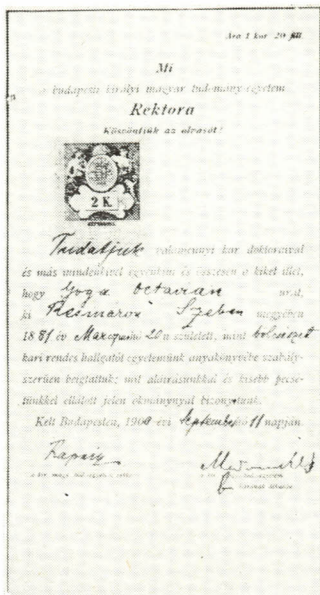 Ára 1 kor. 20 fill
Mi
a budapesti királyi magyar tudomány-egyetem
Rektora
Köszöntjük az olvasót!
2 K.
Tudatjuk valamennyi kar doktoraival
és más mindenkivel egyenkint és összesen a kiket illet,
hogy Goga Octavian urat,
ki Resináron Szeben megyében
1881 év Marczius hó 20 n született, mint bölcsészet
kari rendes hallgatót egyetemünk anyakönyvébe szabály-
szerüen beigtattuk; mit aláirásunkkal és kisebb pecsé-
tünkkel ellátott jelen okmánynyal bizonyitunk.
Kelt Budapesten, 1900 évi September hó 11 napján